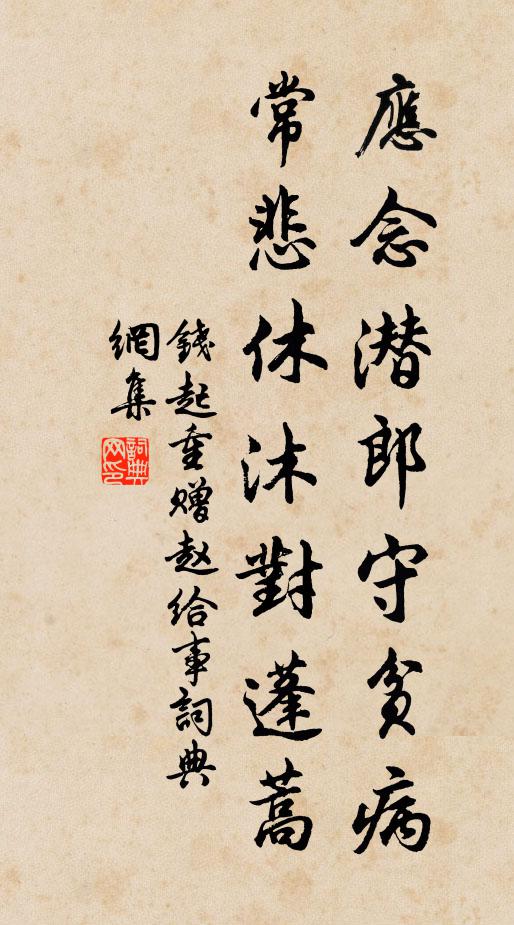 應念潜郎守貧病
常悲休沐對蓬蒿
錢起重贈趙給事詞典
網集
詞典
网印